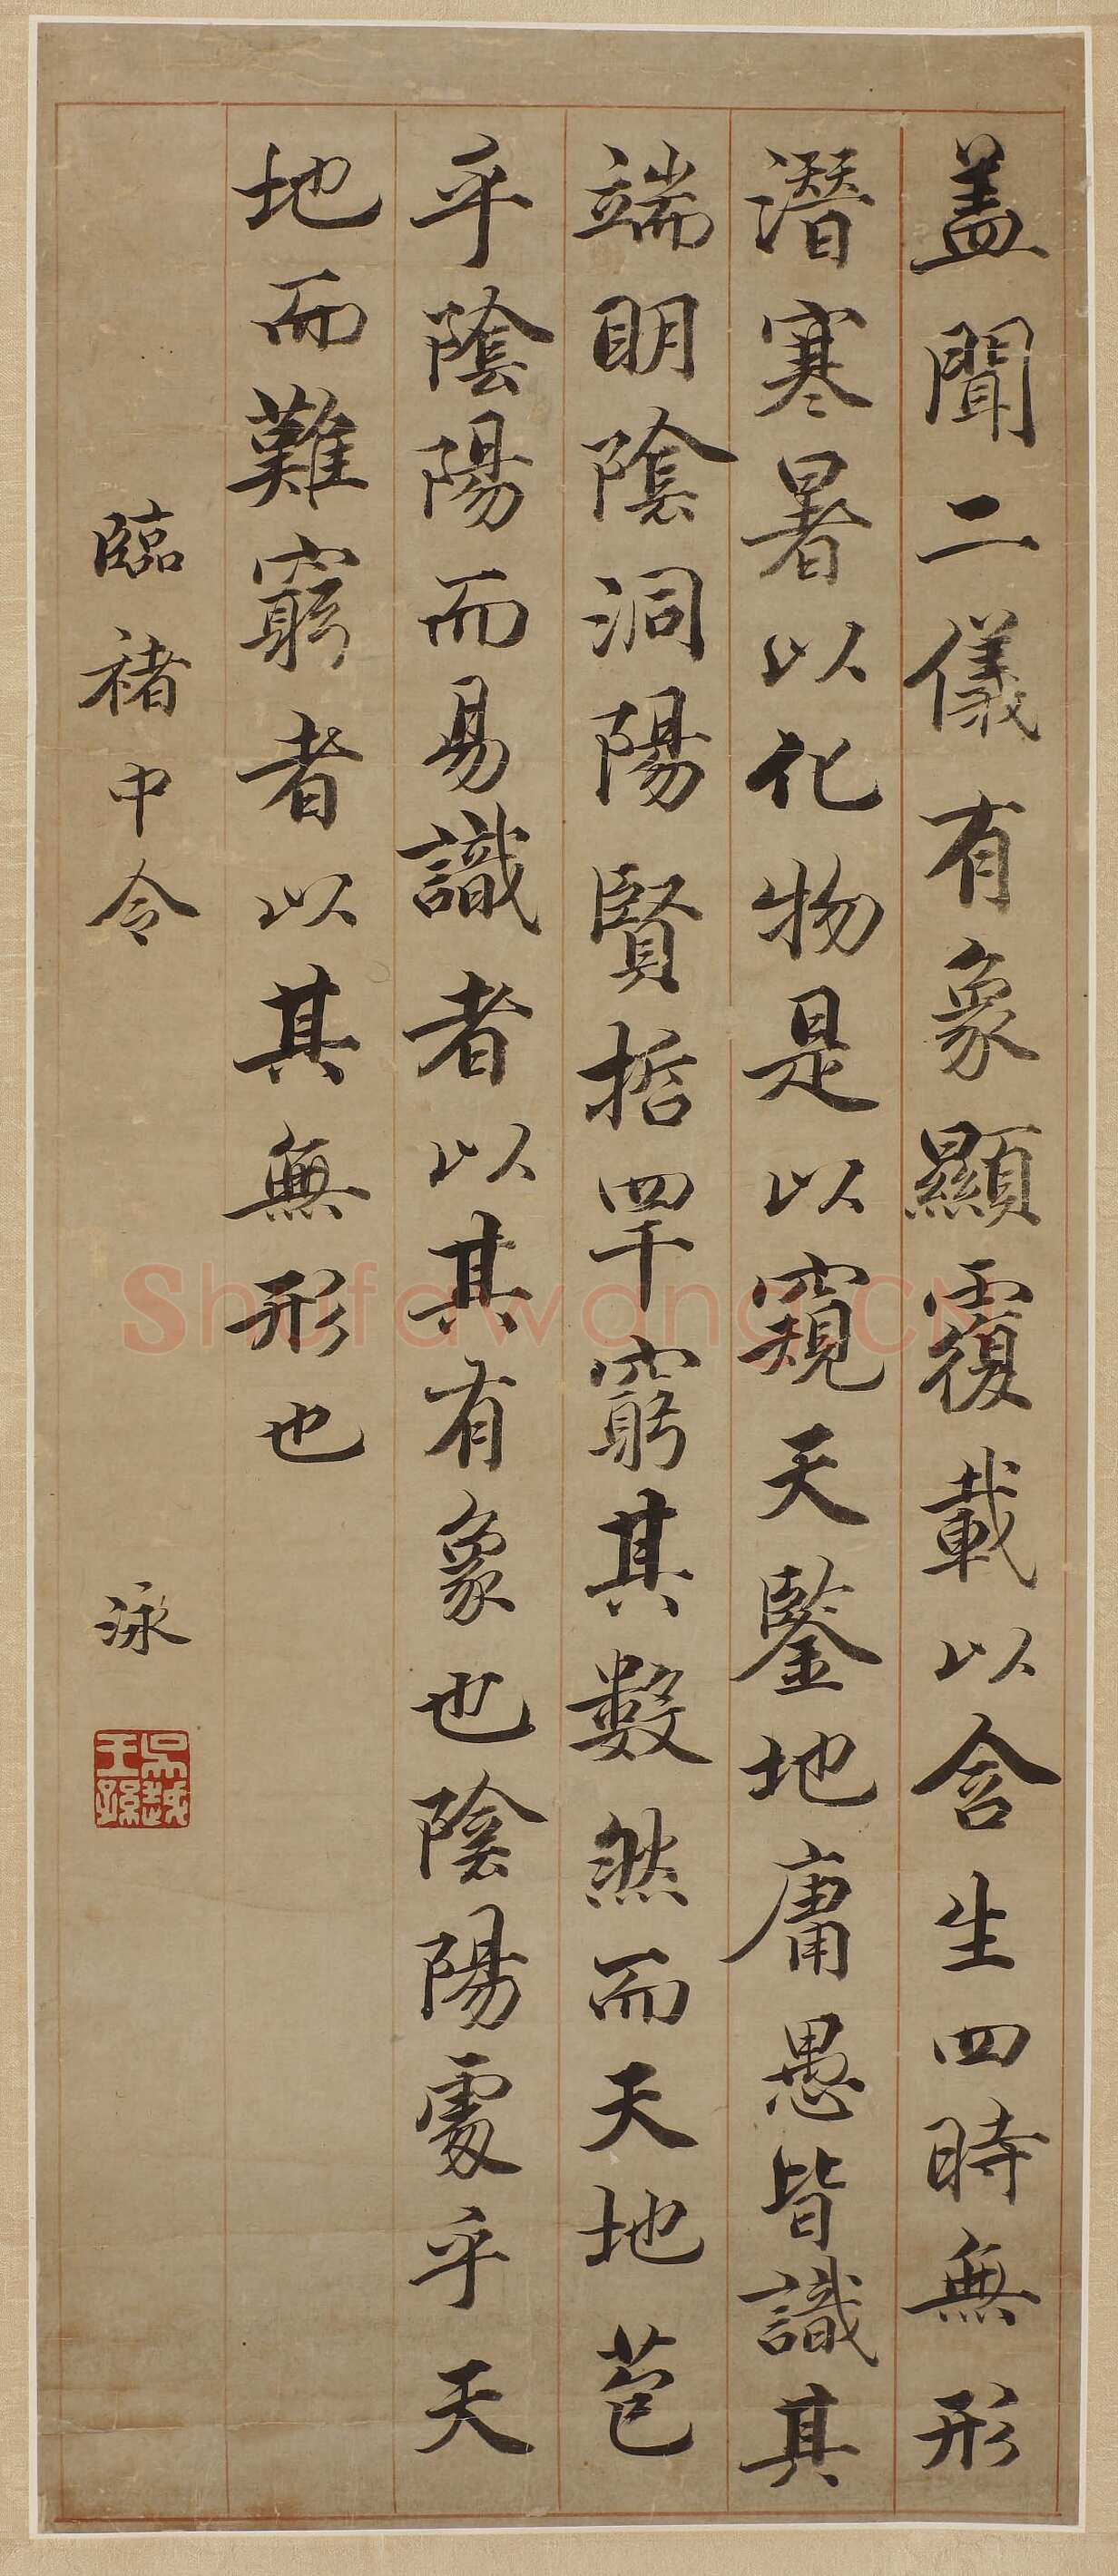 盖聞二儀有象顯覆載以含生四時無形
潛寒暑以化物是以窺天鑒地庸愚皆識其
端明陰洞陽賢哲罕窮其數然而天地苞
乎陰陽而易識者以其有象也陰陽處乎天
地而難窮者以其無形也
臨褚中令 泳
吳越王孫
Shufawang.CN